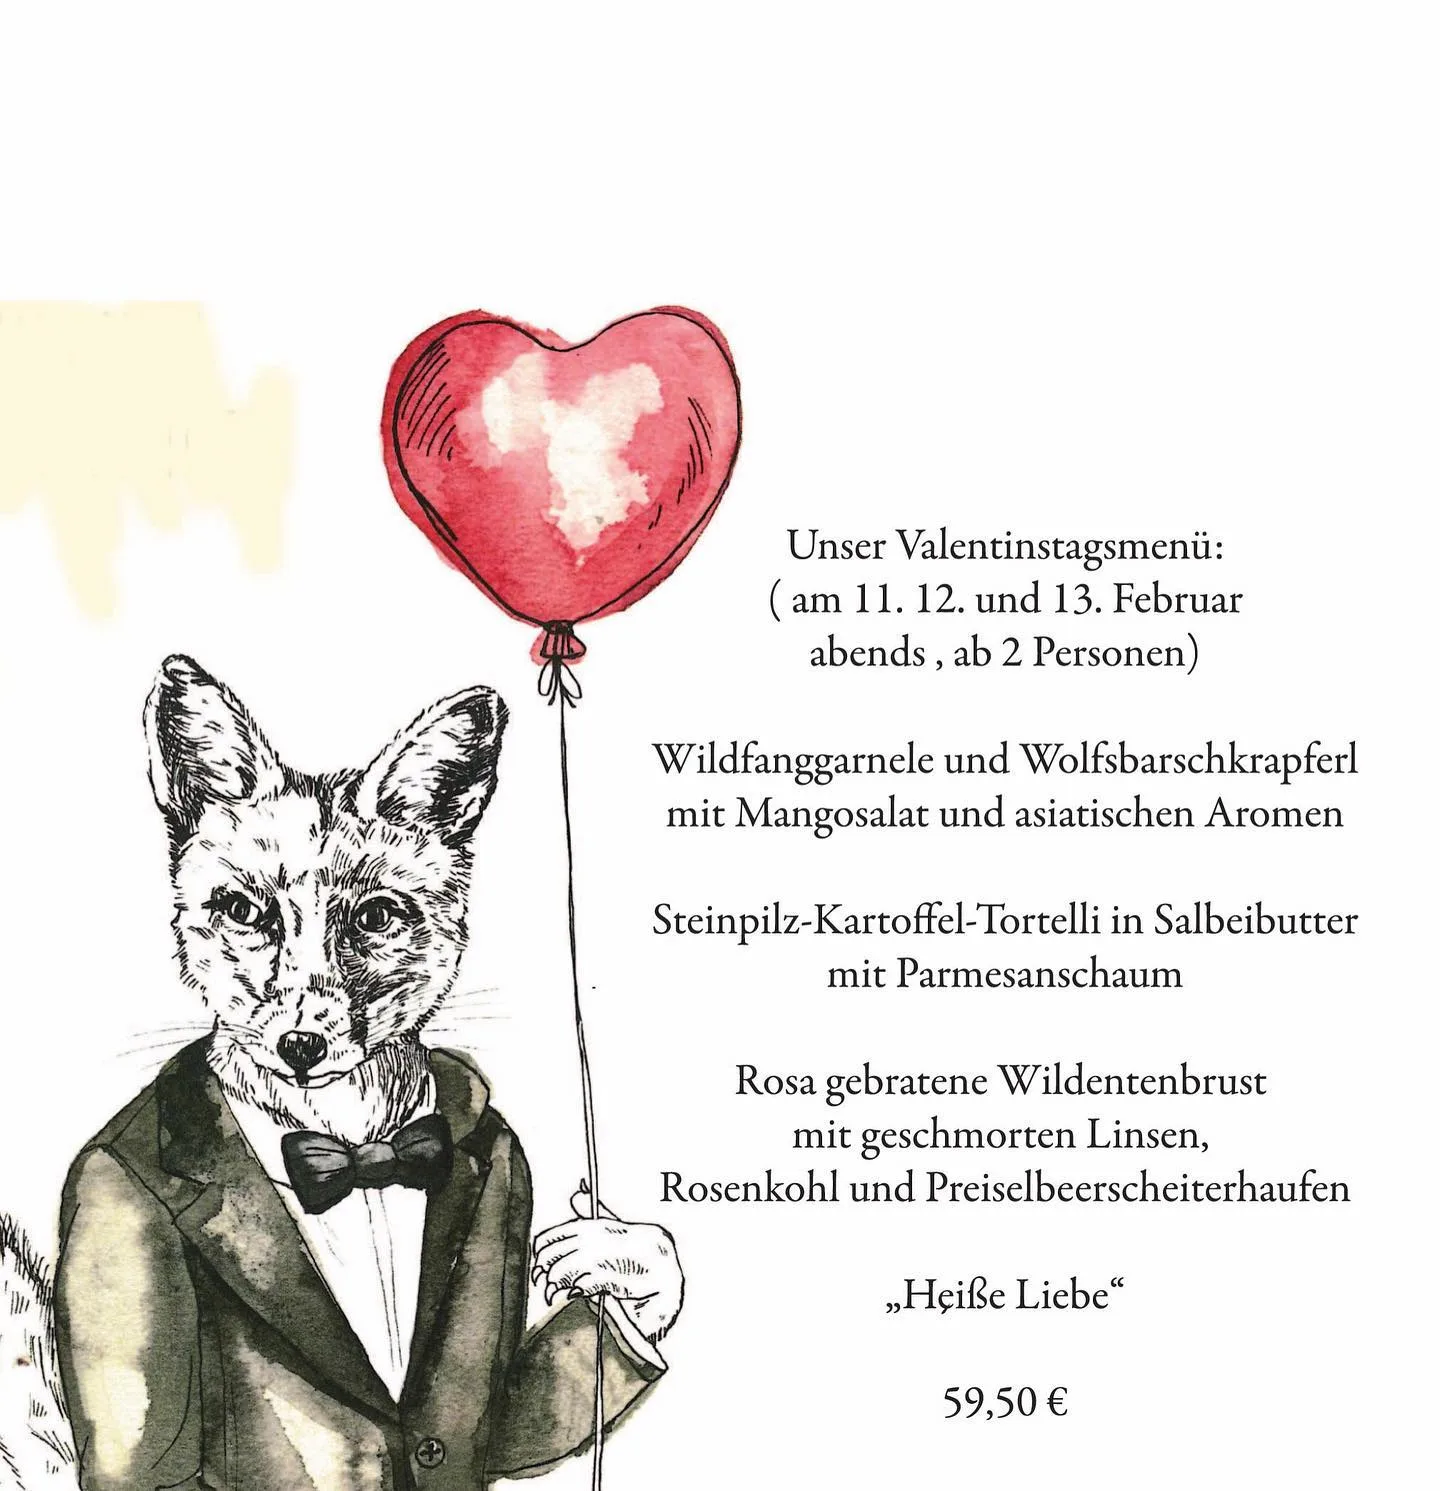 Unser Valentinstagsmenü:
( am 11. 12. und 13. Februar
abends , ab 2 Personen)
Wildfanggarnele und Wolfsbarschkrapferl
mit Mangosalat und asiatischen Aromen
Steinpilz-Kartoffel-Tortelli in Salbeibutter
mit Parmesanschaum
Rosa gebratene Wildentenbrust
mit geschmorten Linsen,
Rosenkohl und Preiselbeerscheiterhaufen
„Heiße Liebe“
59,50 €